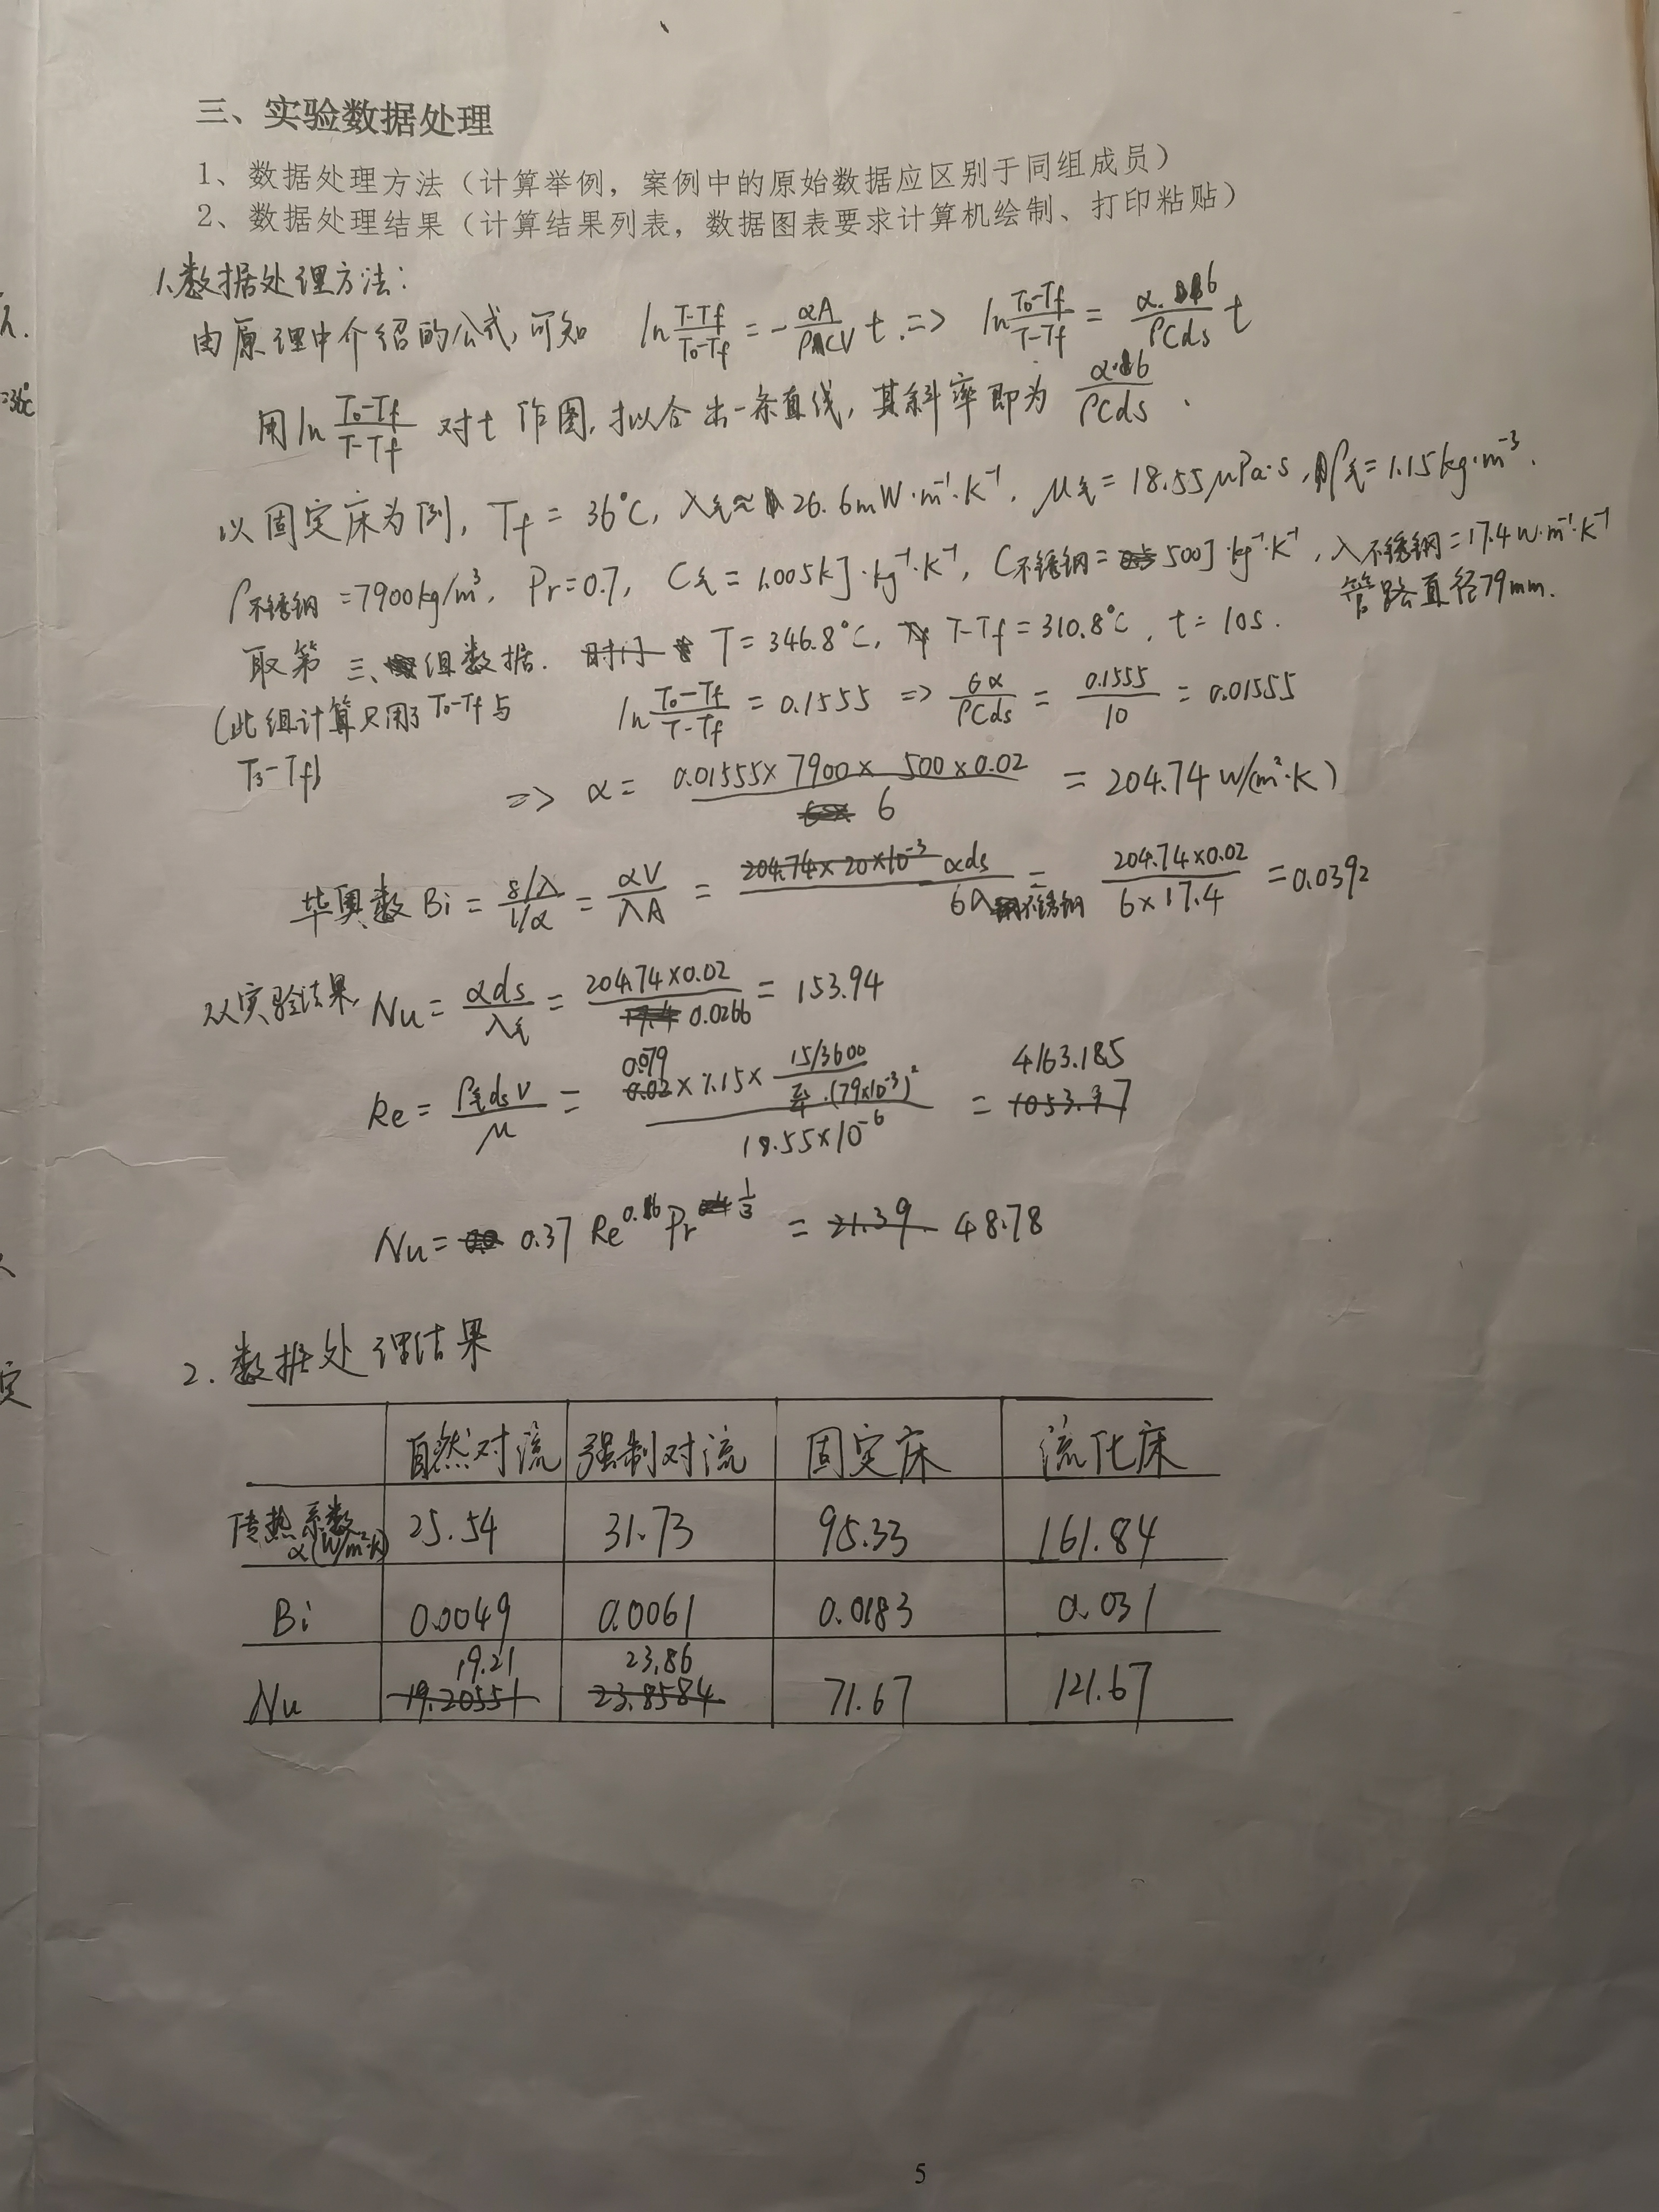 三、实验数据处理
1、数据处理方法（计算举例，案例中的原始数据应区别于同组成员）
2、数据处理结果（计算结果列表，数据图表要求计算机绘制、打印粘贴）
1、数据处理方法：
由原理中介绍的公式，可知 ln (T-Tf)/(T₀-Tf) = -αA/(ρCV) t ⇒ ln (T₀-Tf)/(T-Tf) = α·6/(ρCds) t
=36℃
用 ln (T₀-Tf)/(T-Tf) 对t作图，拟合出一条直线，其斜率即为 α·6/(ρCds) .
以固定床为例，Tf = 36℃, λ气≈26.6mW·m⁻¹·K⁻¹, μ气 = 18.55μPa·s, ρ气 = 1.15kg·m⁻³.
ρ不锈钢 = 7900kg/m³, Pr = 0.7, C气 = 1.005kJ·kg⁻¹·K⁻¹, C不锈钢 = 500J·kg⁻¹·K⁻¹, λ不锈钢 = 17.4W·m⁻¹·K⁻¹
管路直径79mm.
取第三组数据. T = 346.8℃, T-Tf = 310.8℃, t = 10s.
(此组计算只用了T₀-Tf与
T₃-Tf)
ln (T₀-Tf)/(T-Tf) = 0.1555 ⇒ 6α/(ρCds) = 0.1555/10 = 0.01555
⇒ α = (0.01555×7900×500×0.02)/6 = 204.74 W/(m²·K)
毕奥数 Bi = (δ/λ)/(1/α) = αV/(λA) = αds/(6λ不锈钢) = (204.74×0.02)/(6×17.4) = 0.0392
以实验结果, Nu = αds/λ气 = (204.74×0.02)/0.0266 = 153.94
Re = ρ气dsV/μ = (0.079×1.15×(15/3600)/(π/4·(79×10⁻³)²))/(18.55×10⁻⁶) = 4163.185
Nu = 0.37 Re^0.6 Pr^(1/3) = 48.78
定
2. 数据处理结果
自然对流 强制对流 固定床 流化床
传热系数 α(W/m²·K) 25.54 31.73 95.33 161.84
Bi 0.0049 0.0061 0.0183 0.031
Nu 19.21 23.86 71.67 121.67
5